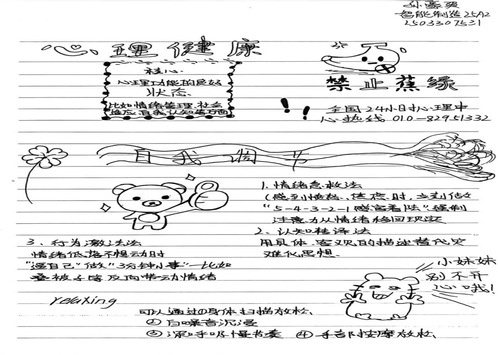 智能制造25A2
1503307531
心理健康
核心:
心理功能的良好
状态
比如情绪管理、社会
适应、自我认知等方面
禁止蕉绿
全国24小时心理中
心热线 010-82951332
自我调节
1. 情绪急救法
(感到愤怒、焦虑时,立刻做
"5-4-3-2-1感官着陆"强制
注意力从情绪移回现实
2. 认知
用具体、客观的描述替代灾
难化思想.
3. 行为激活法
情绪低落不想动时
"逼自己"做"3分钟小事"—比如
叠被子等反向带动情绪
小妹妹
别不开
心哦!
YeeXing
可以通过①身体扫描放松
②白噪音沉浸
④手部按摩放松.